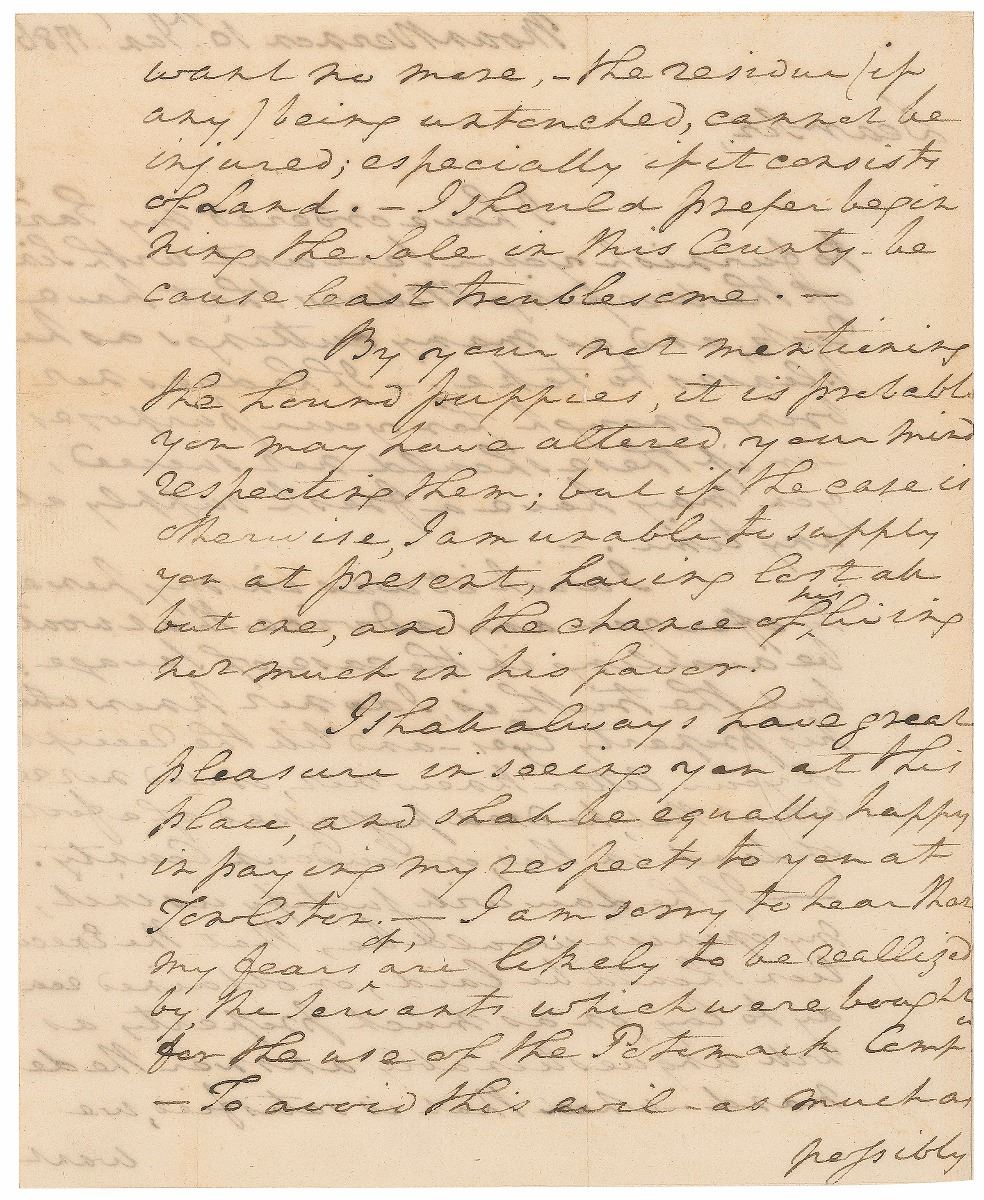 want no more, – the residue (if
any) being untouched, cannot be
injured; especially if it consists
of Land. – I should prefer begin
ning the Sale in this County – be
cause least troublesome. –
By your not mentioning
the hound puppies, it is probable
you may have altered your mind
respecting them; but if the case is
otherwise, I am unable to supply
you at present, having lost all
but one, and the chance of his living
not much in his favor.
I shall always have great
pleasure in seeing you at this
place, and shall be equally happy
in paying my respects to you at
Towlston. – I am sorry to hear that
my fears of, are likely to be reallized
by, the Servants which were bought
for the use of the Potomack Comp
– To avoid this evil – as much as
possibly